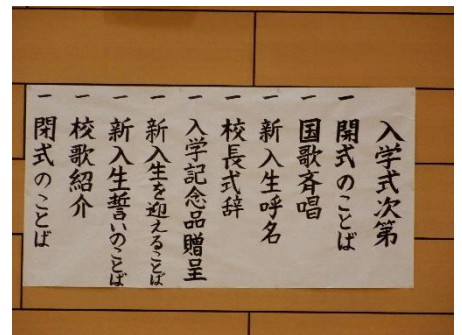 入学式次第
一 開式のことば
一 国歌斉唱
一 新入生呼名
一 校長式辞
一 入学記念品贈呈
一 新入生を迎えることば
一 新入生誓いのことば
一 校歌紹介
一 閉式のことば